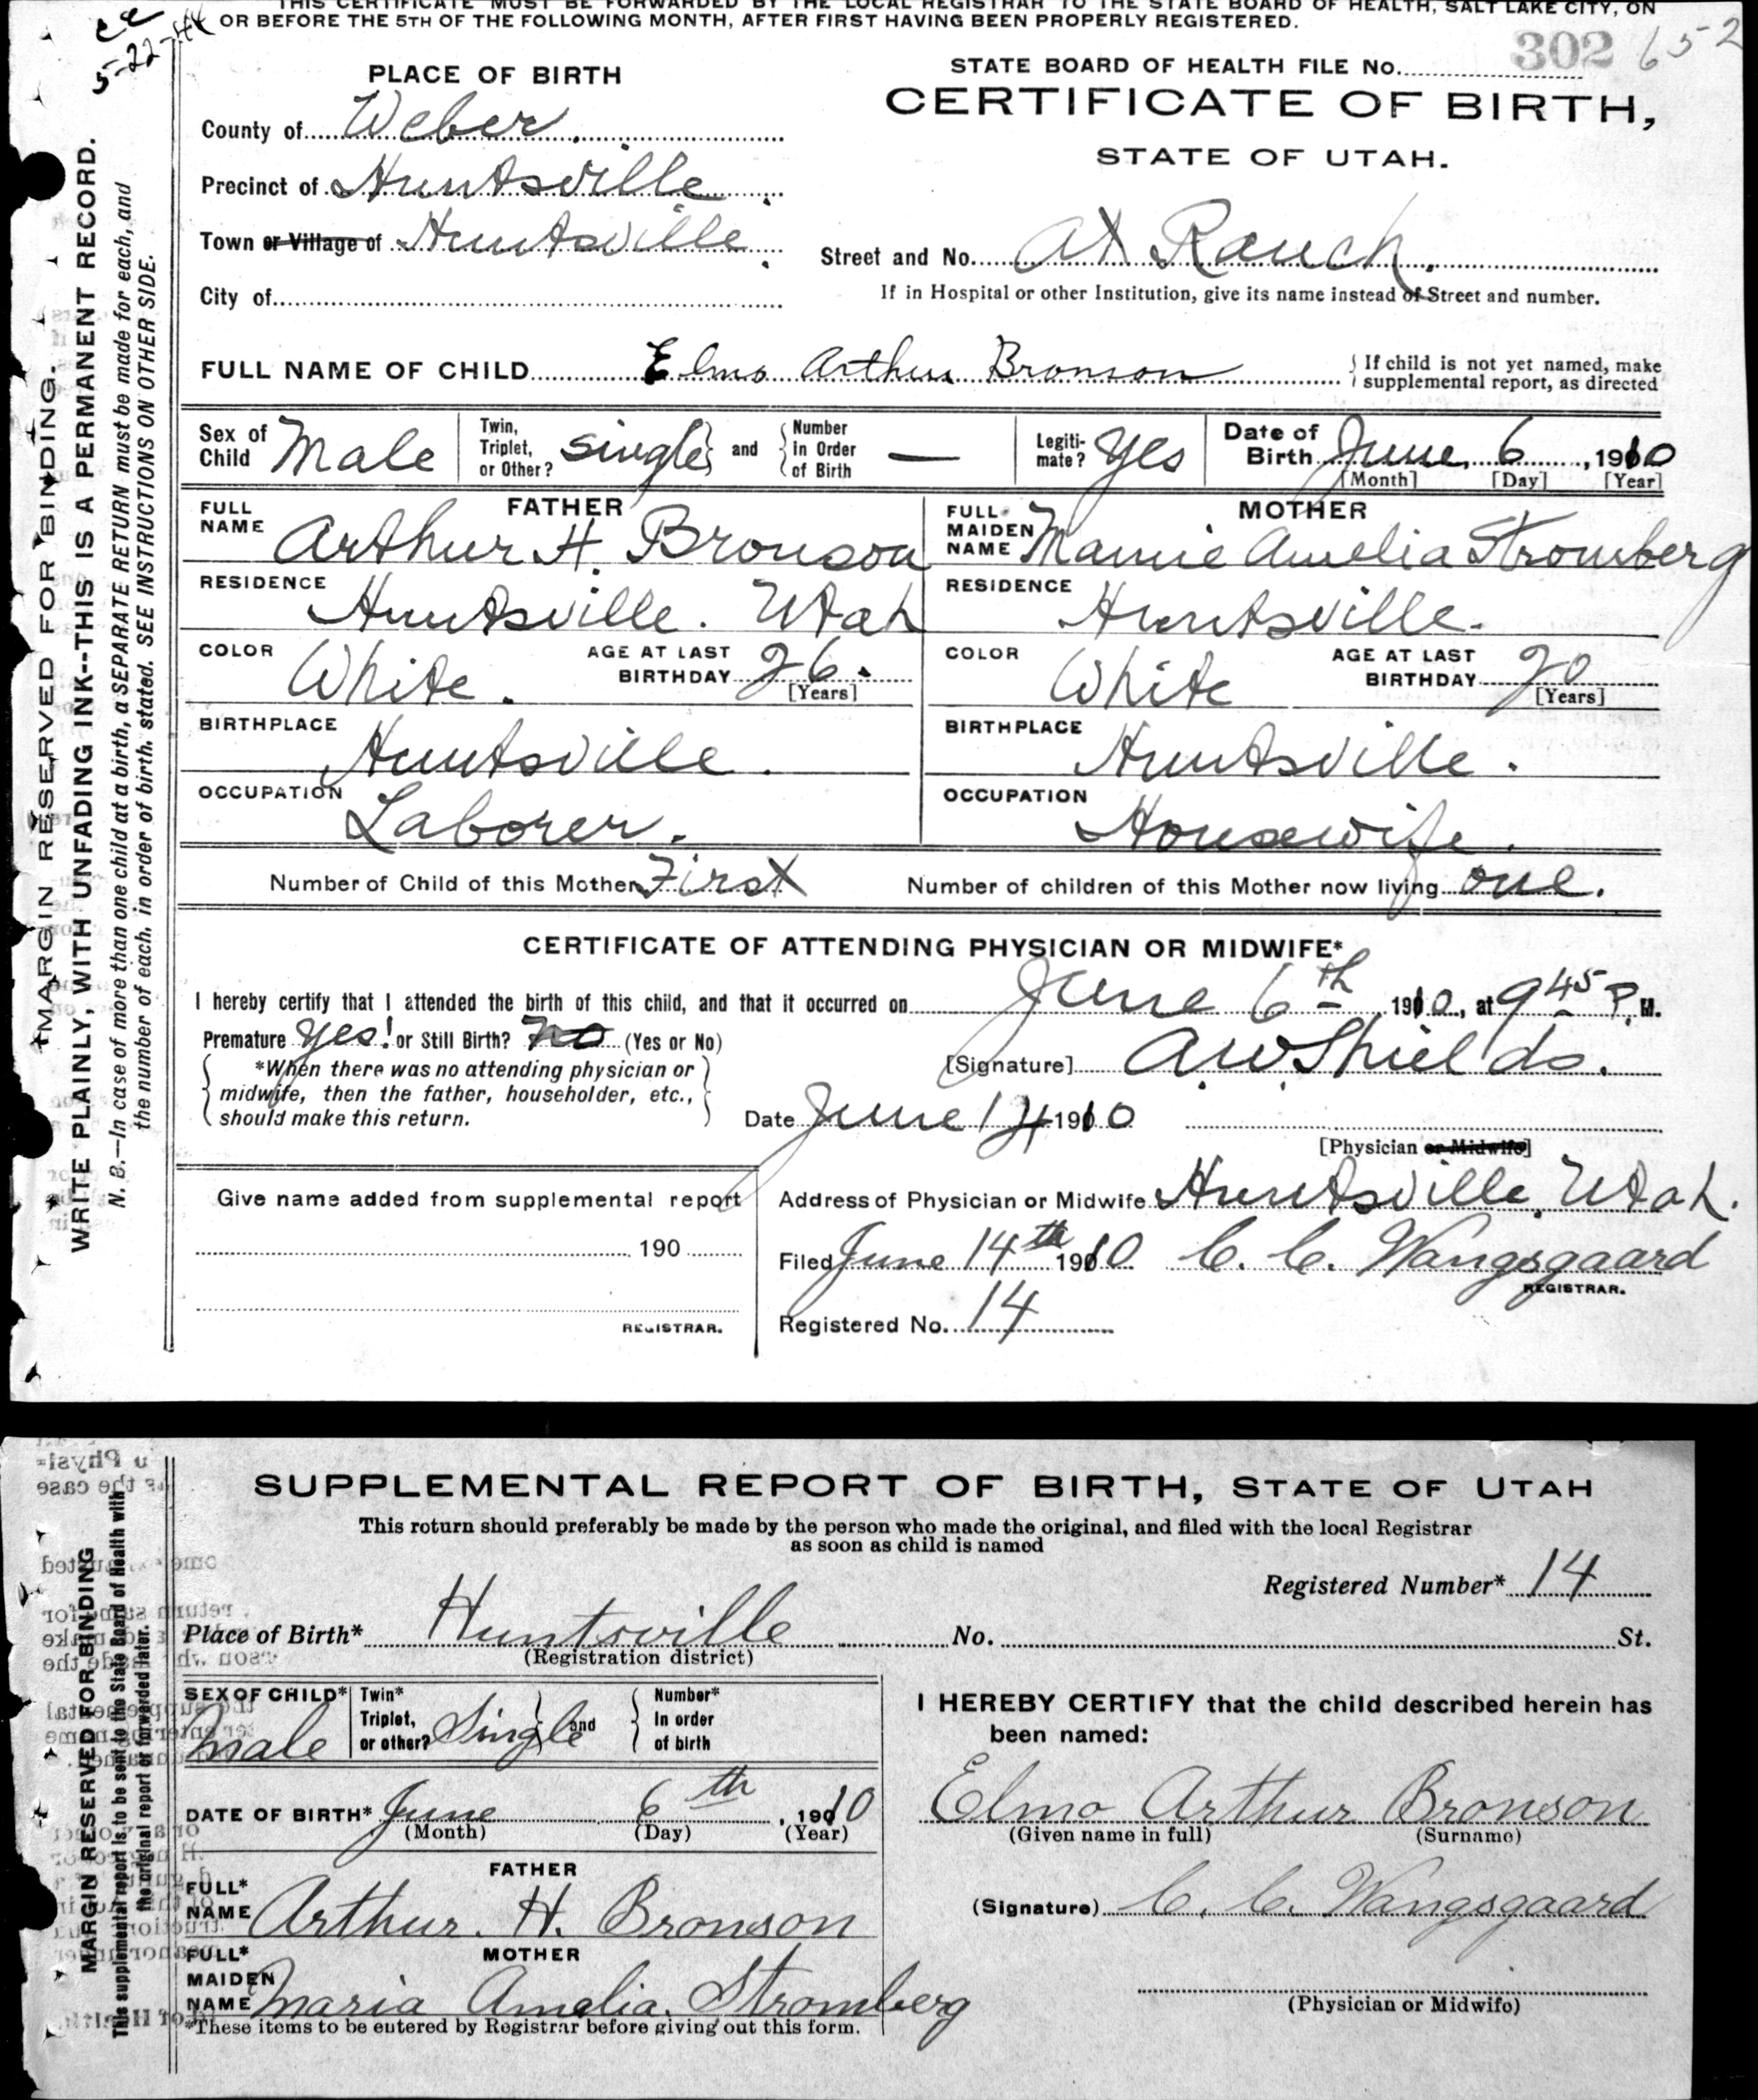 THIS CERTIFICATE MUST BE FORWARDED BY THE LOCAL REGISTRAR TO THE STATE BOARD OF HEALTH, SALT LAKE CITY, ON
OR BEFORE THE 5TH OF THE FOLLOWING MONTH, AFTER FIRST HAVING BEEN PROPERLY REGISTERED.
5-22-44
302 652
PLACE OF BIRTH
STATE BOARD OF HEALTH FILE No.
CERTIFICATE OF BIRTH,
STATE OF UTAH.
County of Weber
Precinct of Huntsville
Town or Village of Huntsville
Street and No. At Ranch.
City of
If in Hospital or other Institution, give its name instead of Street and number.
FULL NAME OF CHILD Elmo Arthur Bronson
If child is not yet named, make
supplemental report, as directed
Sex of Child Male
Twin, Triplet, or Other? Single and Number in Order of Birth —
Legiti-mate? Yes
Date of Birth June 6, 1910
[Month] [Day] [Year]
FATHER
FULL NAME Arthur H. Bronson
MOTHER
FULL MAIDEN NAME Mamie Amelia Stromberg
RESIDENCE Huntsville. Utah
RESIDENCE Huntsville.
COLOR White. AGE AT LAST BIRTHDAY 26. [Years]
COLOR White AGE AT LAST BIRTHDAY 20 [Years]
BIRTHPLACE Huntsville.
BIRTHPLACE Huntsville.
OCCUPATION Laborer.
OCCUPATION Housewife.
Number of Child of this Mother First
Number of children of this Mother now living one.
CERTIFICATE OF ATTENDING PHYSICIAN OR MIDWIFE*
I hereby certify that I attended the birth of this child, and that it occurred on June 6th, 1910, at 9 45 P. M.
Premature Yes! or Still Birth? No (Yes or No)
*When there was no attending physician or
midwife, then the father, householder, etc.,
should make this return.
[Signature] A.W. Shields.
Date June 14 1910
[Physician or Midwife]
Give name added from supplemental report
190
REGISTRAR.
Address of Physician or Midwife Huntsville, Utah.
Filed June 14th 1910 C. C. Wangsgaard
REGISTRAR.
Registered No. 14
MARGIN RESERVED FOR BINDING.
WRITE PLAINLY, WITH UNFADING INK--THIS IS A PERMANENT RECORD.
N. B.—In case of more than one child at a birth, a SEPARATE RETURN must be made for each, and
the number of each, in order of birth, stated. SEE INSTRUCTIONS ON OTHER SIDE.
SUPPLEMENTAL REPORT OF BIRTH, STATE OF UTAH
This return should preferably be made by the person who made the original, and filed with the local Registrar
as soon as child is named
Registered Number* 14
Place of Birth* Huntsville No. St.
(Registration district)
SEX OF CHILD* Male
Twin* Triplet, or other? Single and Number* In order of birth
I HEREBY CERTIFY that the child described herein has
been named:
DATE OF BIRTH* June 6th, 1910
(Month) (Day) (Year)
Elmo Arthur Bronson
(Given name in full) (Surname)
FATHER
FULL* NAME Arthur. H. Bronson
(Signature) C. C. Wangsgaard
MOTHER
FULL* MAIDEN NAME Maria Amelia. Stromberg
(Physician or Midwife)
*These items to be entered by Registrar before giving out this form.
MARGIN RESERVED FOR BINDING
This supplemental report is to be sent to the State Board of Health with
the original report or forwarded later.